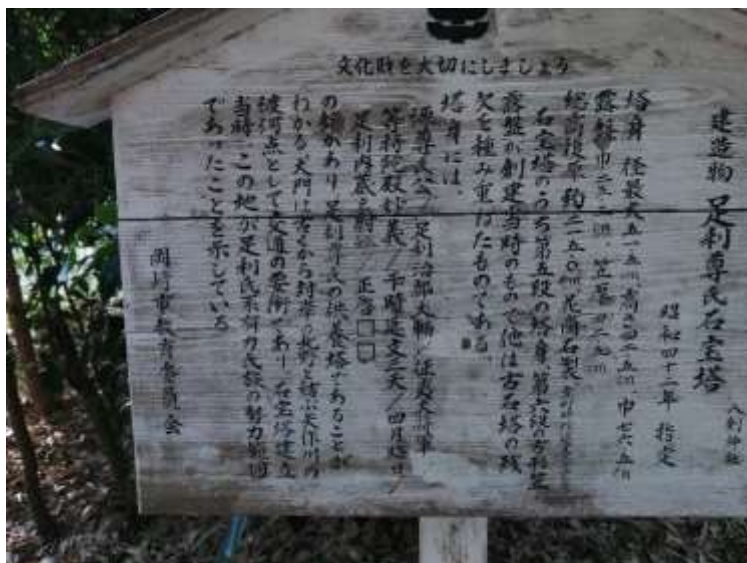 文化財を大切にしましょう
建造物 足利尊氏石宝塔
八剣神社
昭和四十二年 指定
塔身 径最大五一・五㎝ 高さ四二・五㎝ 巾七六・五㎝
露盤 巾 笠
総高復原 約二一五・〇㎝ 花崗石製
石宝塔のうち第五段の塔身、第六段の方形笠
露盤が創建当時のもので他は古石塔の残
欠を積み重ねたものである。
塔身には、
源尊氏公/足利治部大輔/征夷大将軍
等持院殿妙義/干時延文三天/四月 /
足利内 正 □□
の銘があり足利尊氏の供養塔であることが
わかる。大門は古くから対岸の 結ぶ矢作川の
渡河点として交通の要衝であり、石宝塔建立
当時、この地が足利氏 の勢力範囲
であったことを示している
岡崎市教育委員会